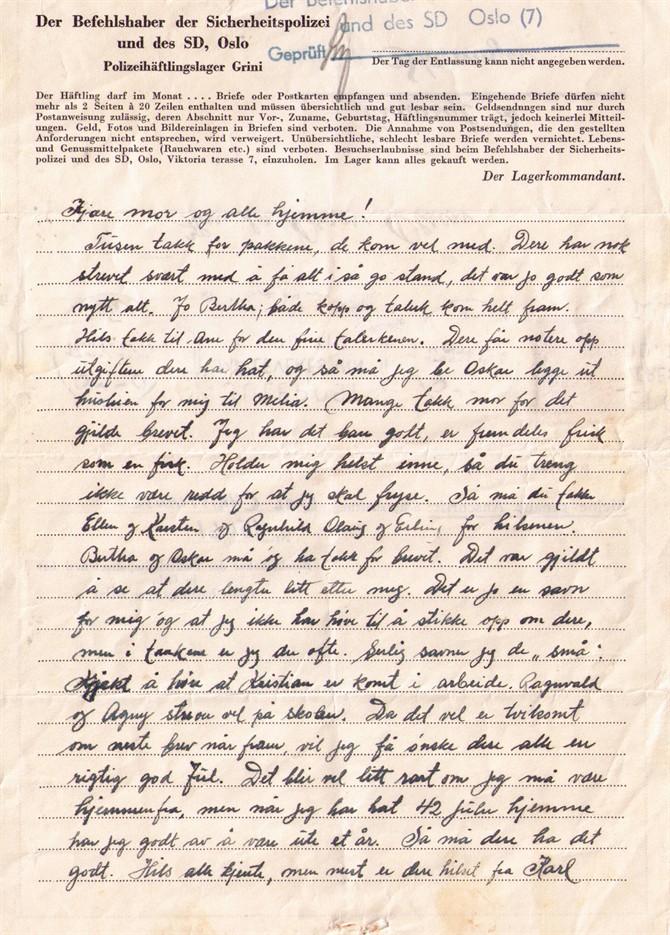 Der Befehlshaber der Sicherheitspolizei
und des SD, Oslo
Polizeihäftlingslager Grini
Der Befehlshaber
und des SD Oslo (7)
Geprüft:
Der Tag der Entlassung kann nicht angegeben werden.
Der Häftling darf im Monat .... Briefe oder Postkarten empfangen und absenden. Eingehende Briefe dürfen nicht
mehr als 2 Seiten à 20 Zeilen enthalten und müssen übersichtlich und gut lesbar sein. Geldsendungen sind nur durch
Postanweisung zulässig, deren Abschnitt nur Vor-, Zuname, Geburtstag, Häftlingsnummer trägt, jedoch keinerlei Mitteil-
ungen. Geld, Fotos und Bildereinlagen in Briefen sind verboten. Die Annahme von Postsendungen, die den gestellten
Anforderungen nicht entsprechen, wird verweigert. Unübersichtliche, schlecht lesbare Briefe werden vernichtet. Lebens-
und Genussmittelpakete (Rauchwaren etc.) sind verboten. Besuchserlaubnisse sind beim Befehlshaber der Sicherheits-
polizei und des SD, Oslo, Viktoria terasse 7, einzuholen. Im Lager kann alles gekauft werden.
Der Lagerkommandant.
Kjære mor og alle hjemme!
Tusen takk for pakkene, de kom vel med. Dere har nok
strevet svært med å få alt i så go stand, det var jo godt som
nytt alt. Jo Bertha, både kopp og talerk kom helt fram.
Hils takk til Ane for den fine talerkenen. Dere får notere opp
utgiftene dere har hat, og så må jeg be Oskar legge ut
husleien for mig til Melia. Mange takk mor for det
gjilde brevet. Jeg har det bare godt, er fremdeles frisk
som en fisk. Holder mig helst inne, så du treng
ikke være redd for at jeg skal fryse. Så må du takke
Ellen og Karsten og Ragnhild Olaug og Erling for hilsenen.
Bertha og Oskar må óg ha takk for brevet. Det var gjildt
å se at dere lengter litt etter meg. Det er jo en savn
for mig óg at jeg ikke har høve til å stikke opp om dere,
men i tankene er jeg der ofte. Særlig savner jeg de „små".
Kjekt å høre at Kristian er komt i arbeide. Ragnvald
og Agny strever vel på skolen. Da det vel er tvilsomt
om neste brev når fram, vil jeg få ønske dere alle en
rigtig god Jul. Det blir vel litt rart om jeg må være
hjemmenfra, men når jeg har hat 42 juler hjemme
har jeg godt av å være ute et år. Så må dere ha det
godt. Hils alle kjente, men mest er dere hilset fra Karl